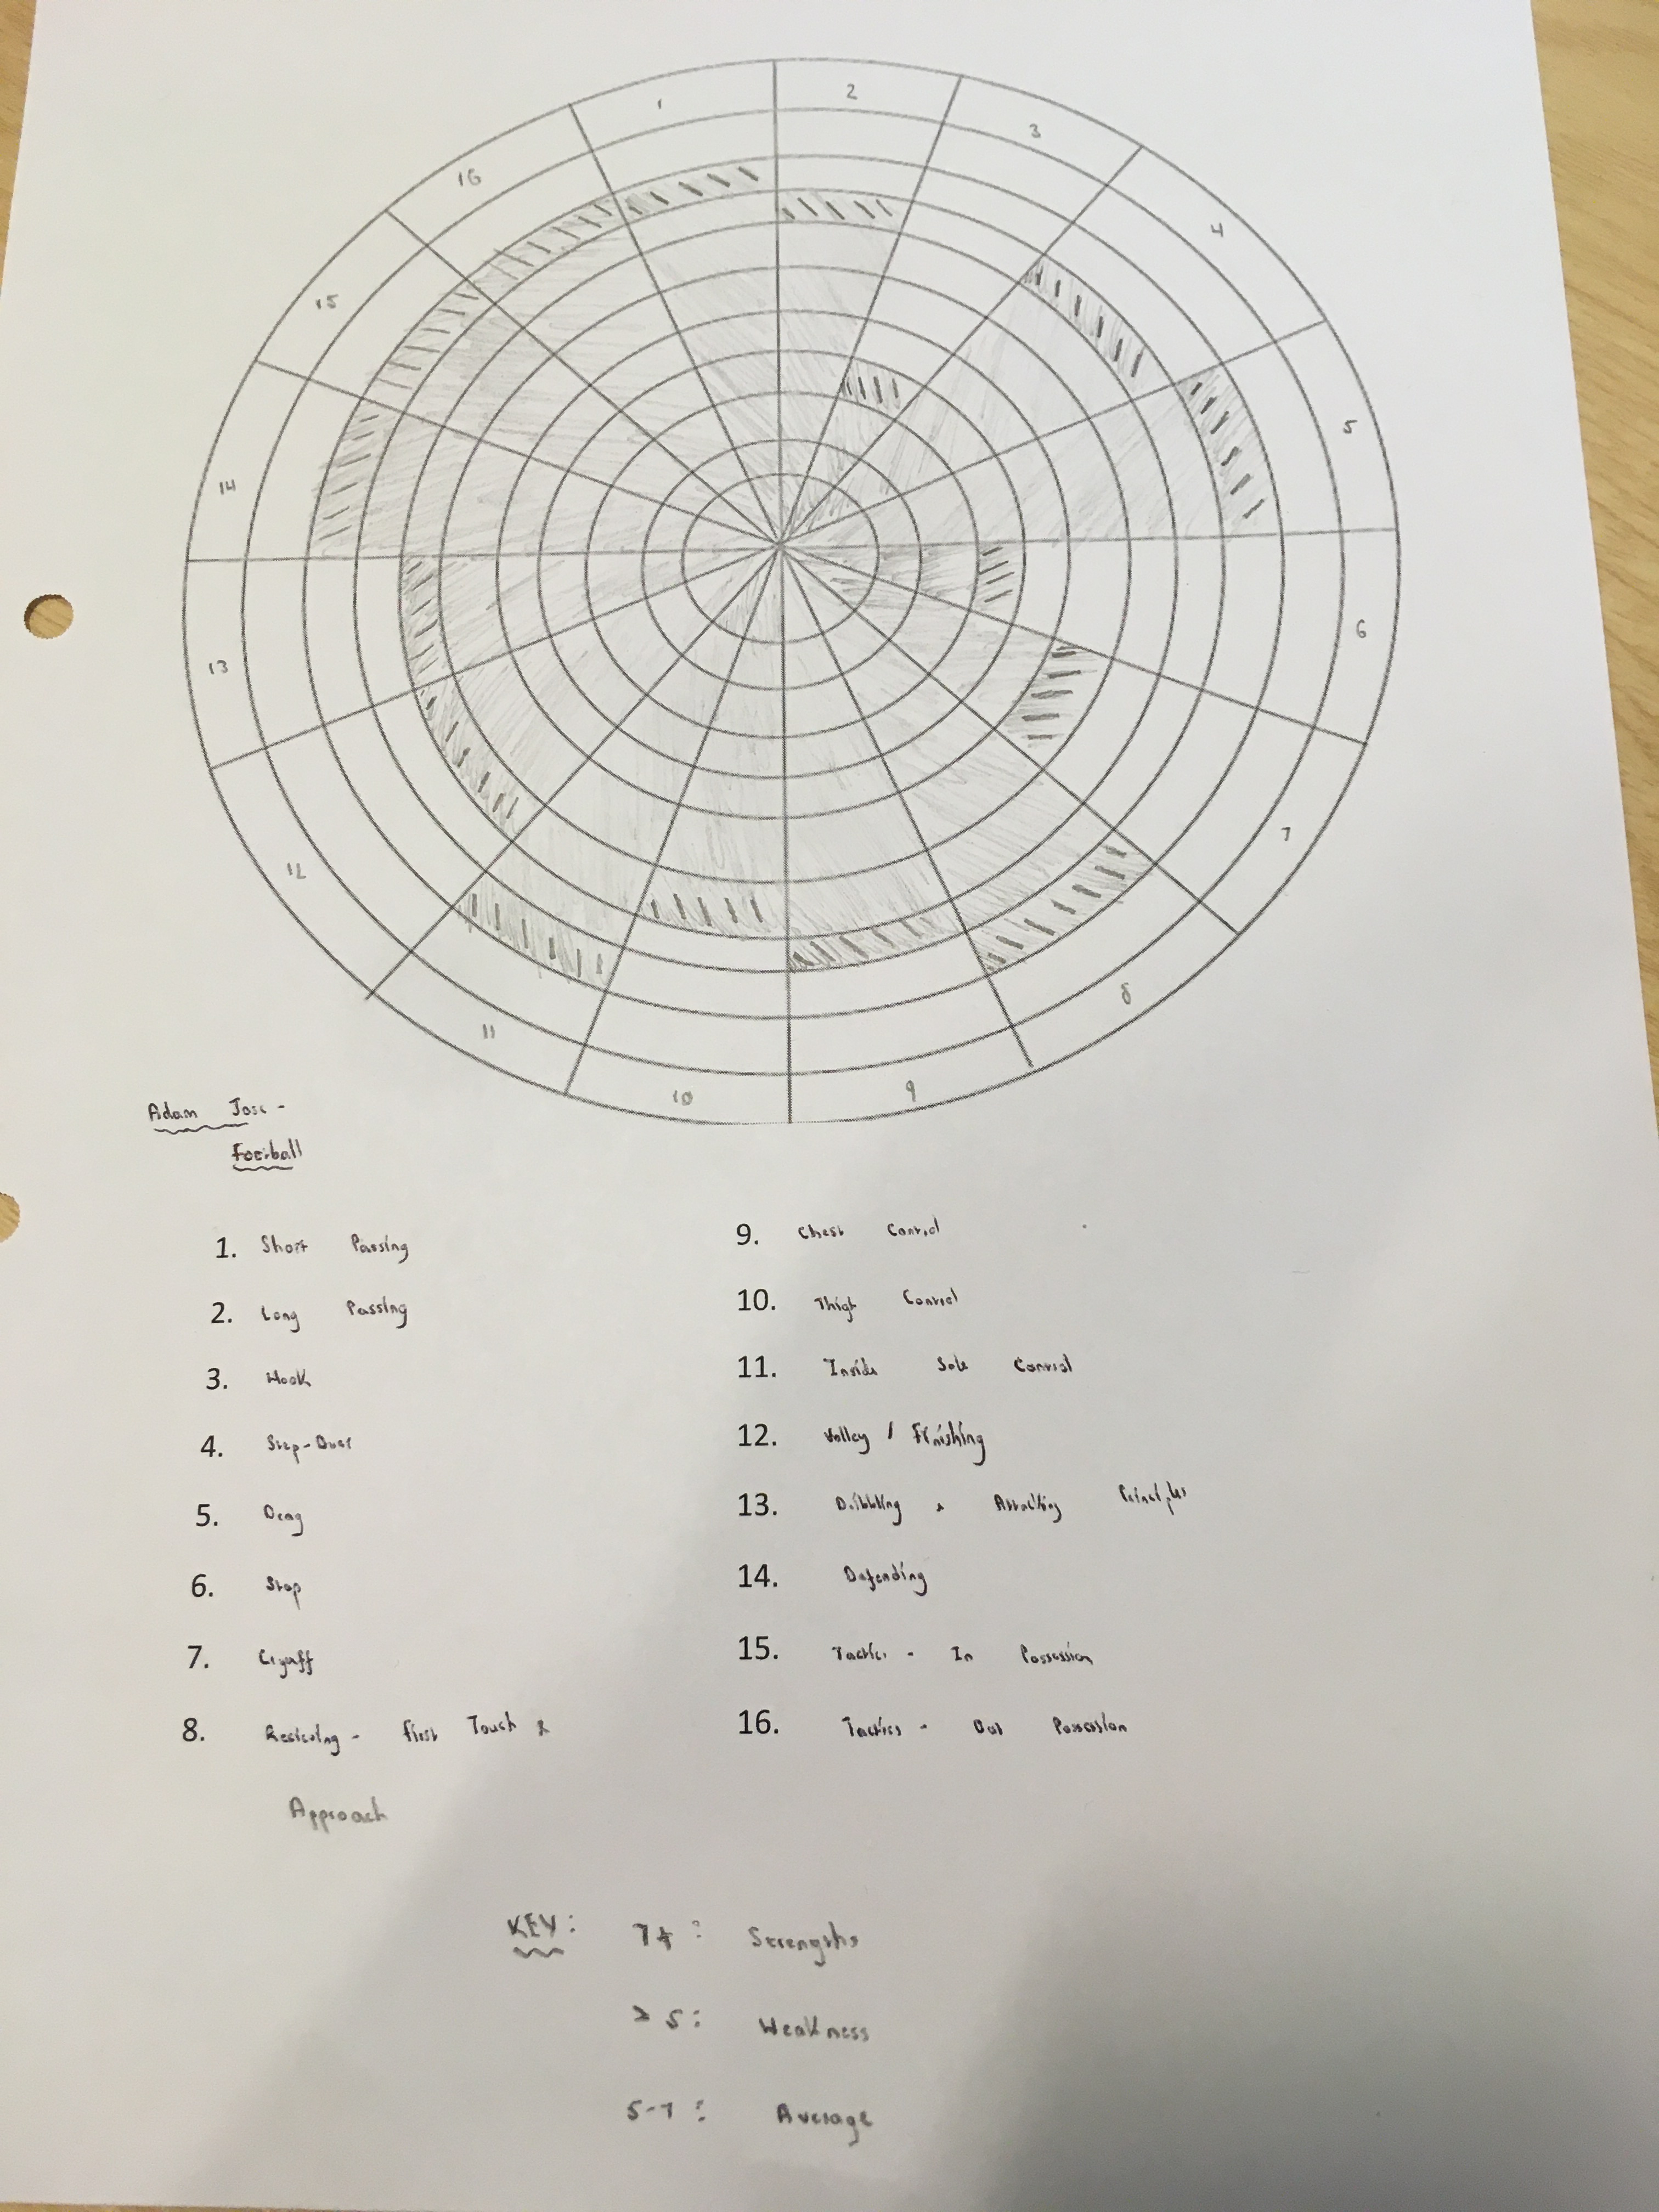 1
2
3
4
5
6
7
8
9
10
11
12
13
14
15
16
Adam Jose -
Football
1. Short Passing
2. Long Passing
3. Hook
4. Step-Over
5. Drag
6. Stop
7. Cryuff
8. - First Touch &
Approach
9. Chest Control
10. Thigh Control
11. Inside Sole Control
12. Volley / Finishing
13. Dribbling & Attacking Principles
14. Defending
15. Tactics - In Possession
16. Tactics - Out Possession
KEY: 7+ : Strengths
> 5 : Weakness
5-7 : Average